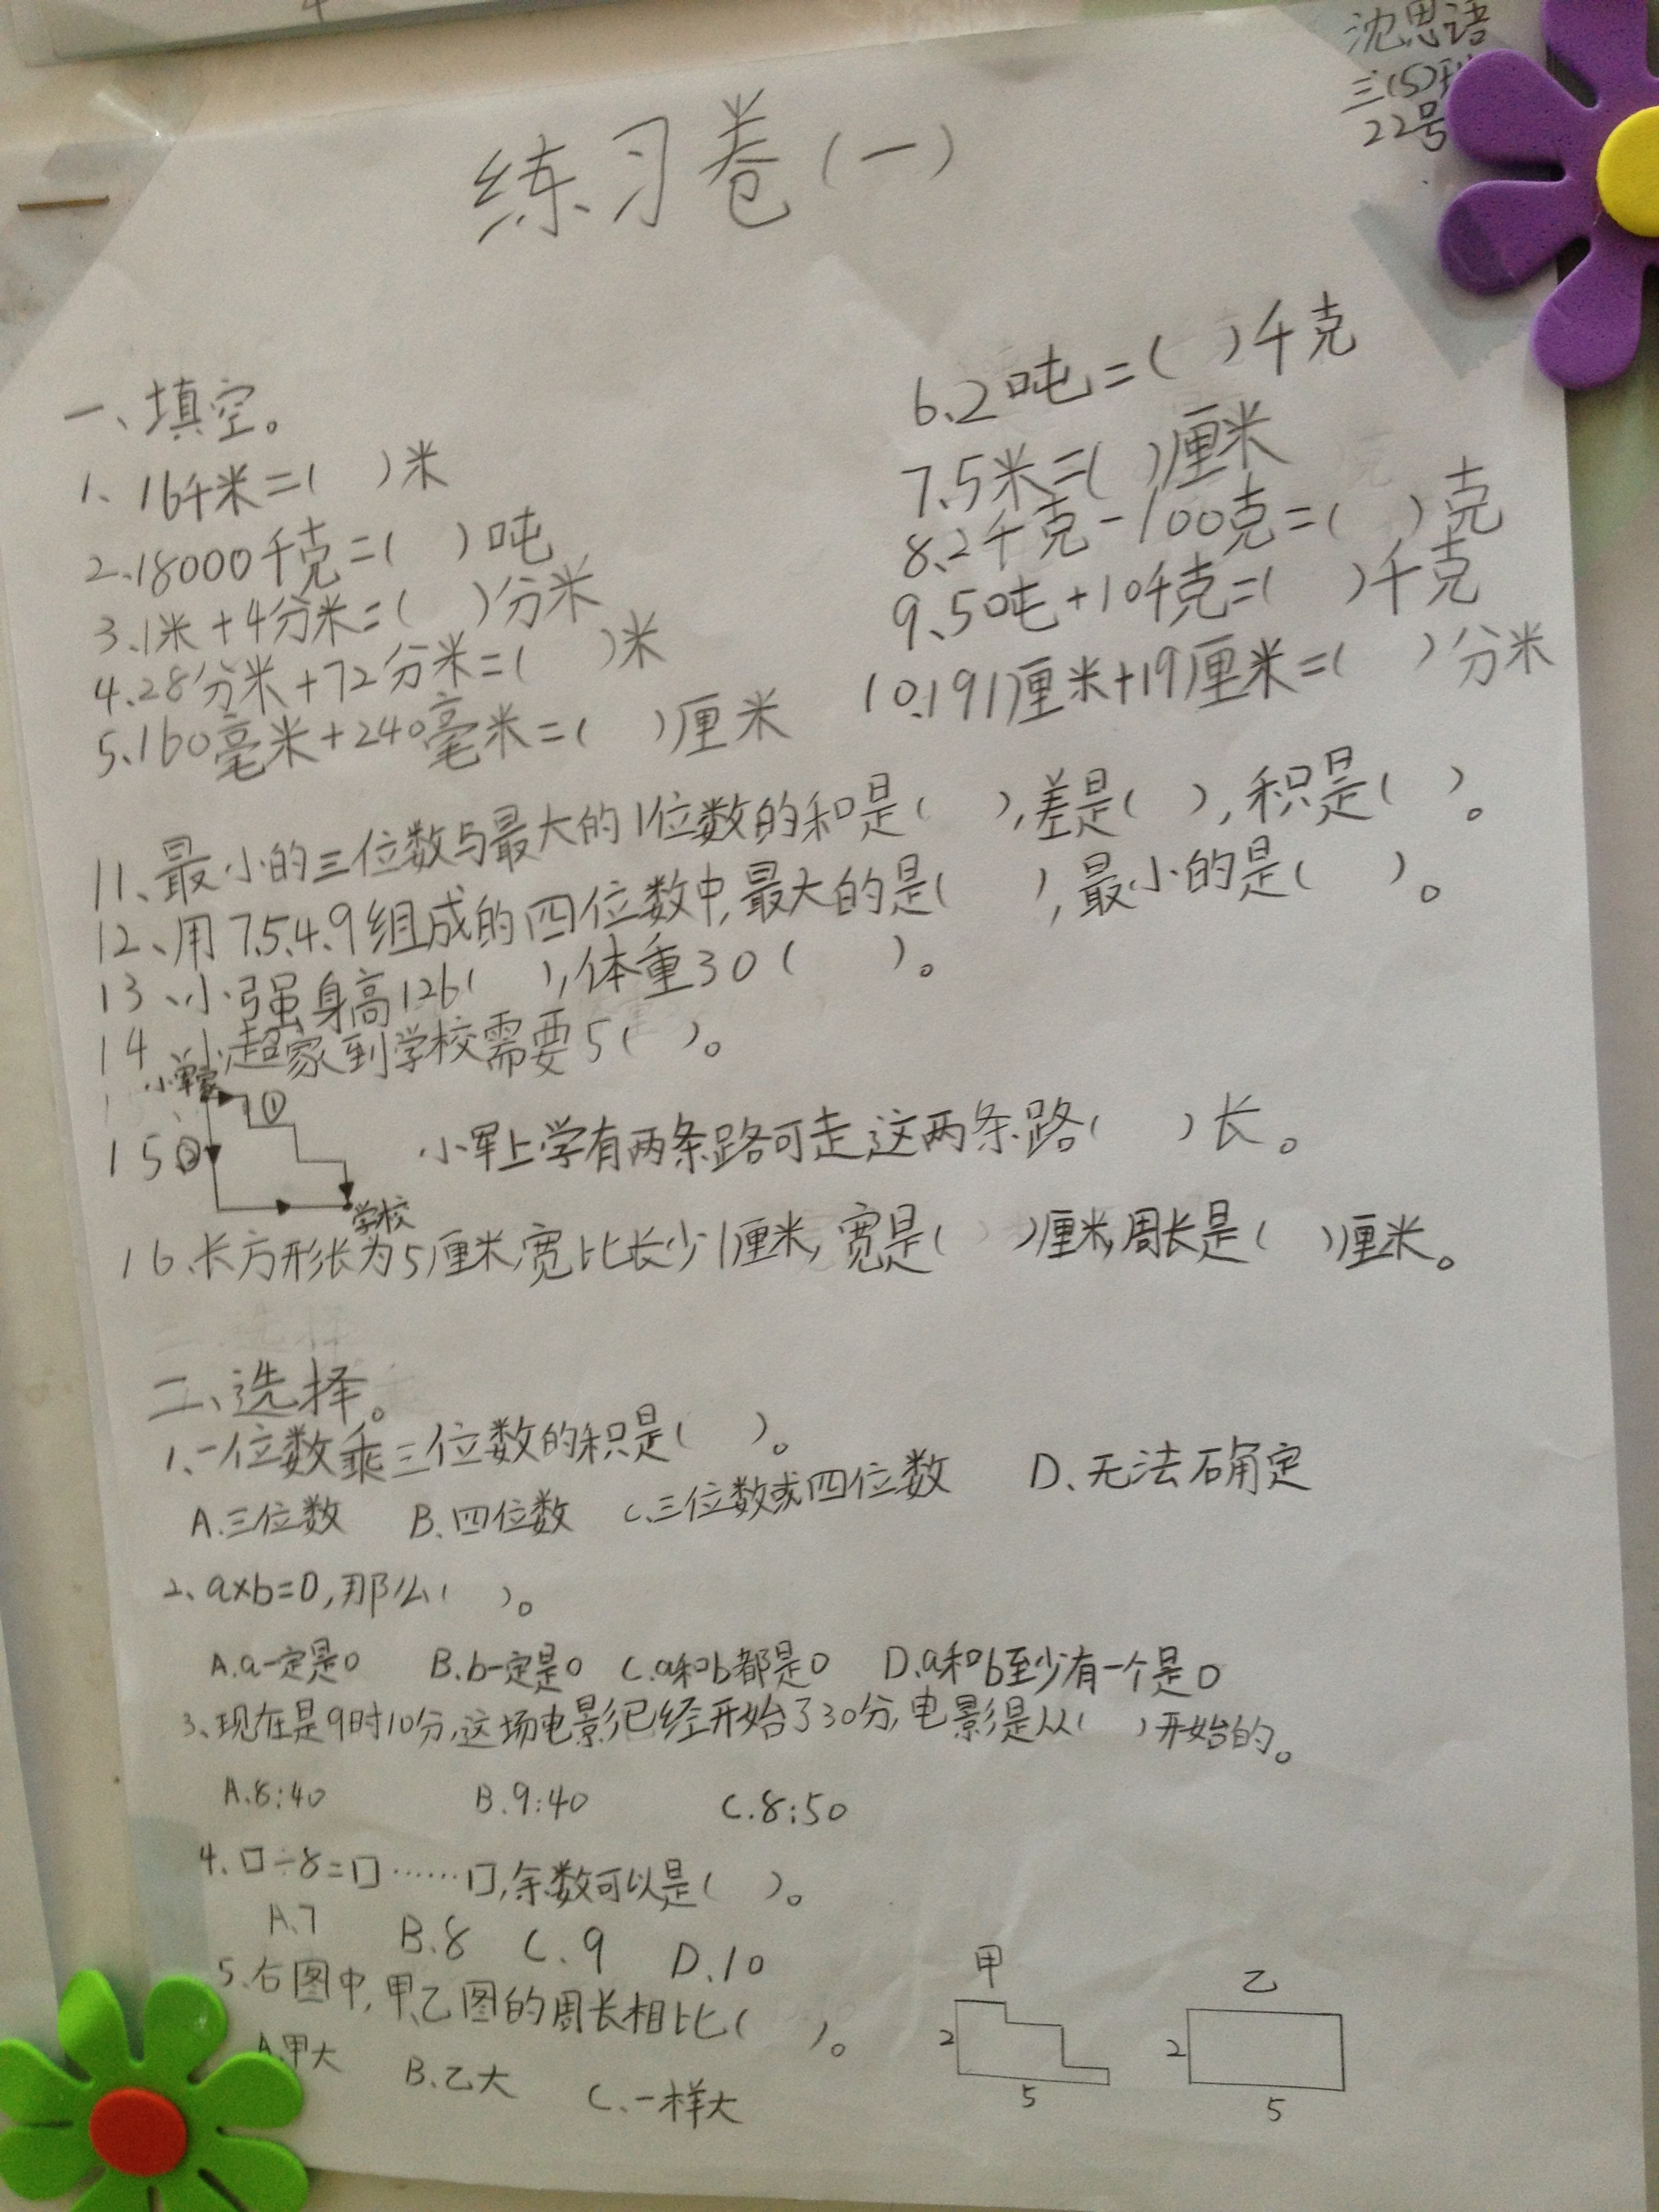 沈思语
三(5)班
22号
练习卷(一)
一、填空。
1、16千米=( )米
2、18000千克=( )吨
3、1米+4分米=( )分米
4、28分米+72分米=( )米
5、160毫米+240毫米=( )厘米
6、2吨=( )千克
7、5米=( )厘米
8、2千克-100克=( )克
9、5吨+10千克=( )千克
10、191厘米+19厘米=( )分米
11、最小的三位数与最大的1位数的和是( ),差是( ),积是( )。
12、用7、5、4、9组成的四位数中,最大的是( ),最小的是( )。
13、小强身高126( ),体重30( )。
14、小超家到学校需要5( )。
小军家
①
15 ② 小军上学有两条路可走,这两条路( )长。
学校
16、长方形长为5厘米,宽比长少1厘米,宽是( )厘米,周长是( )厘米。
二、选择。
1、一位数乘三位数的积是( )。
A.三位数 B.四位数 C.三位数或四位数 D、无法确定
2、a×b=0,那么( )。
A.a一定是0 B.b一定是0 C.a和b都是0 D.a和b至少有一个是0
3、现在是9时10分,这场电影已经开始了30分,电影是从( )开始的。
A.8:40 B.9:40 C.8:50
4、口÷8=口……口,余数可以是( )。
A.7 B.8 C.9 D.10
5.右图中,甲、乙图的周长相比( )。
A.甲大 B.乙大 C.一样大
甲 乙
2 2
5 5